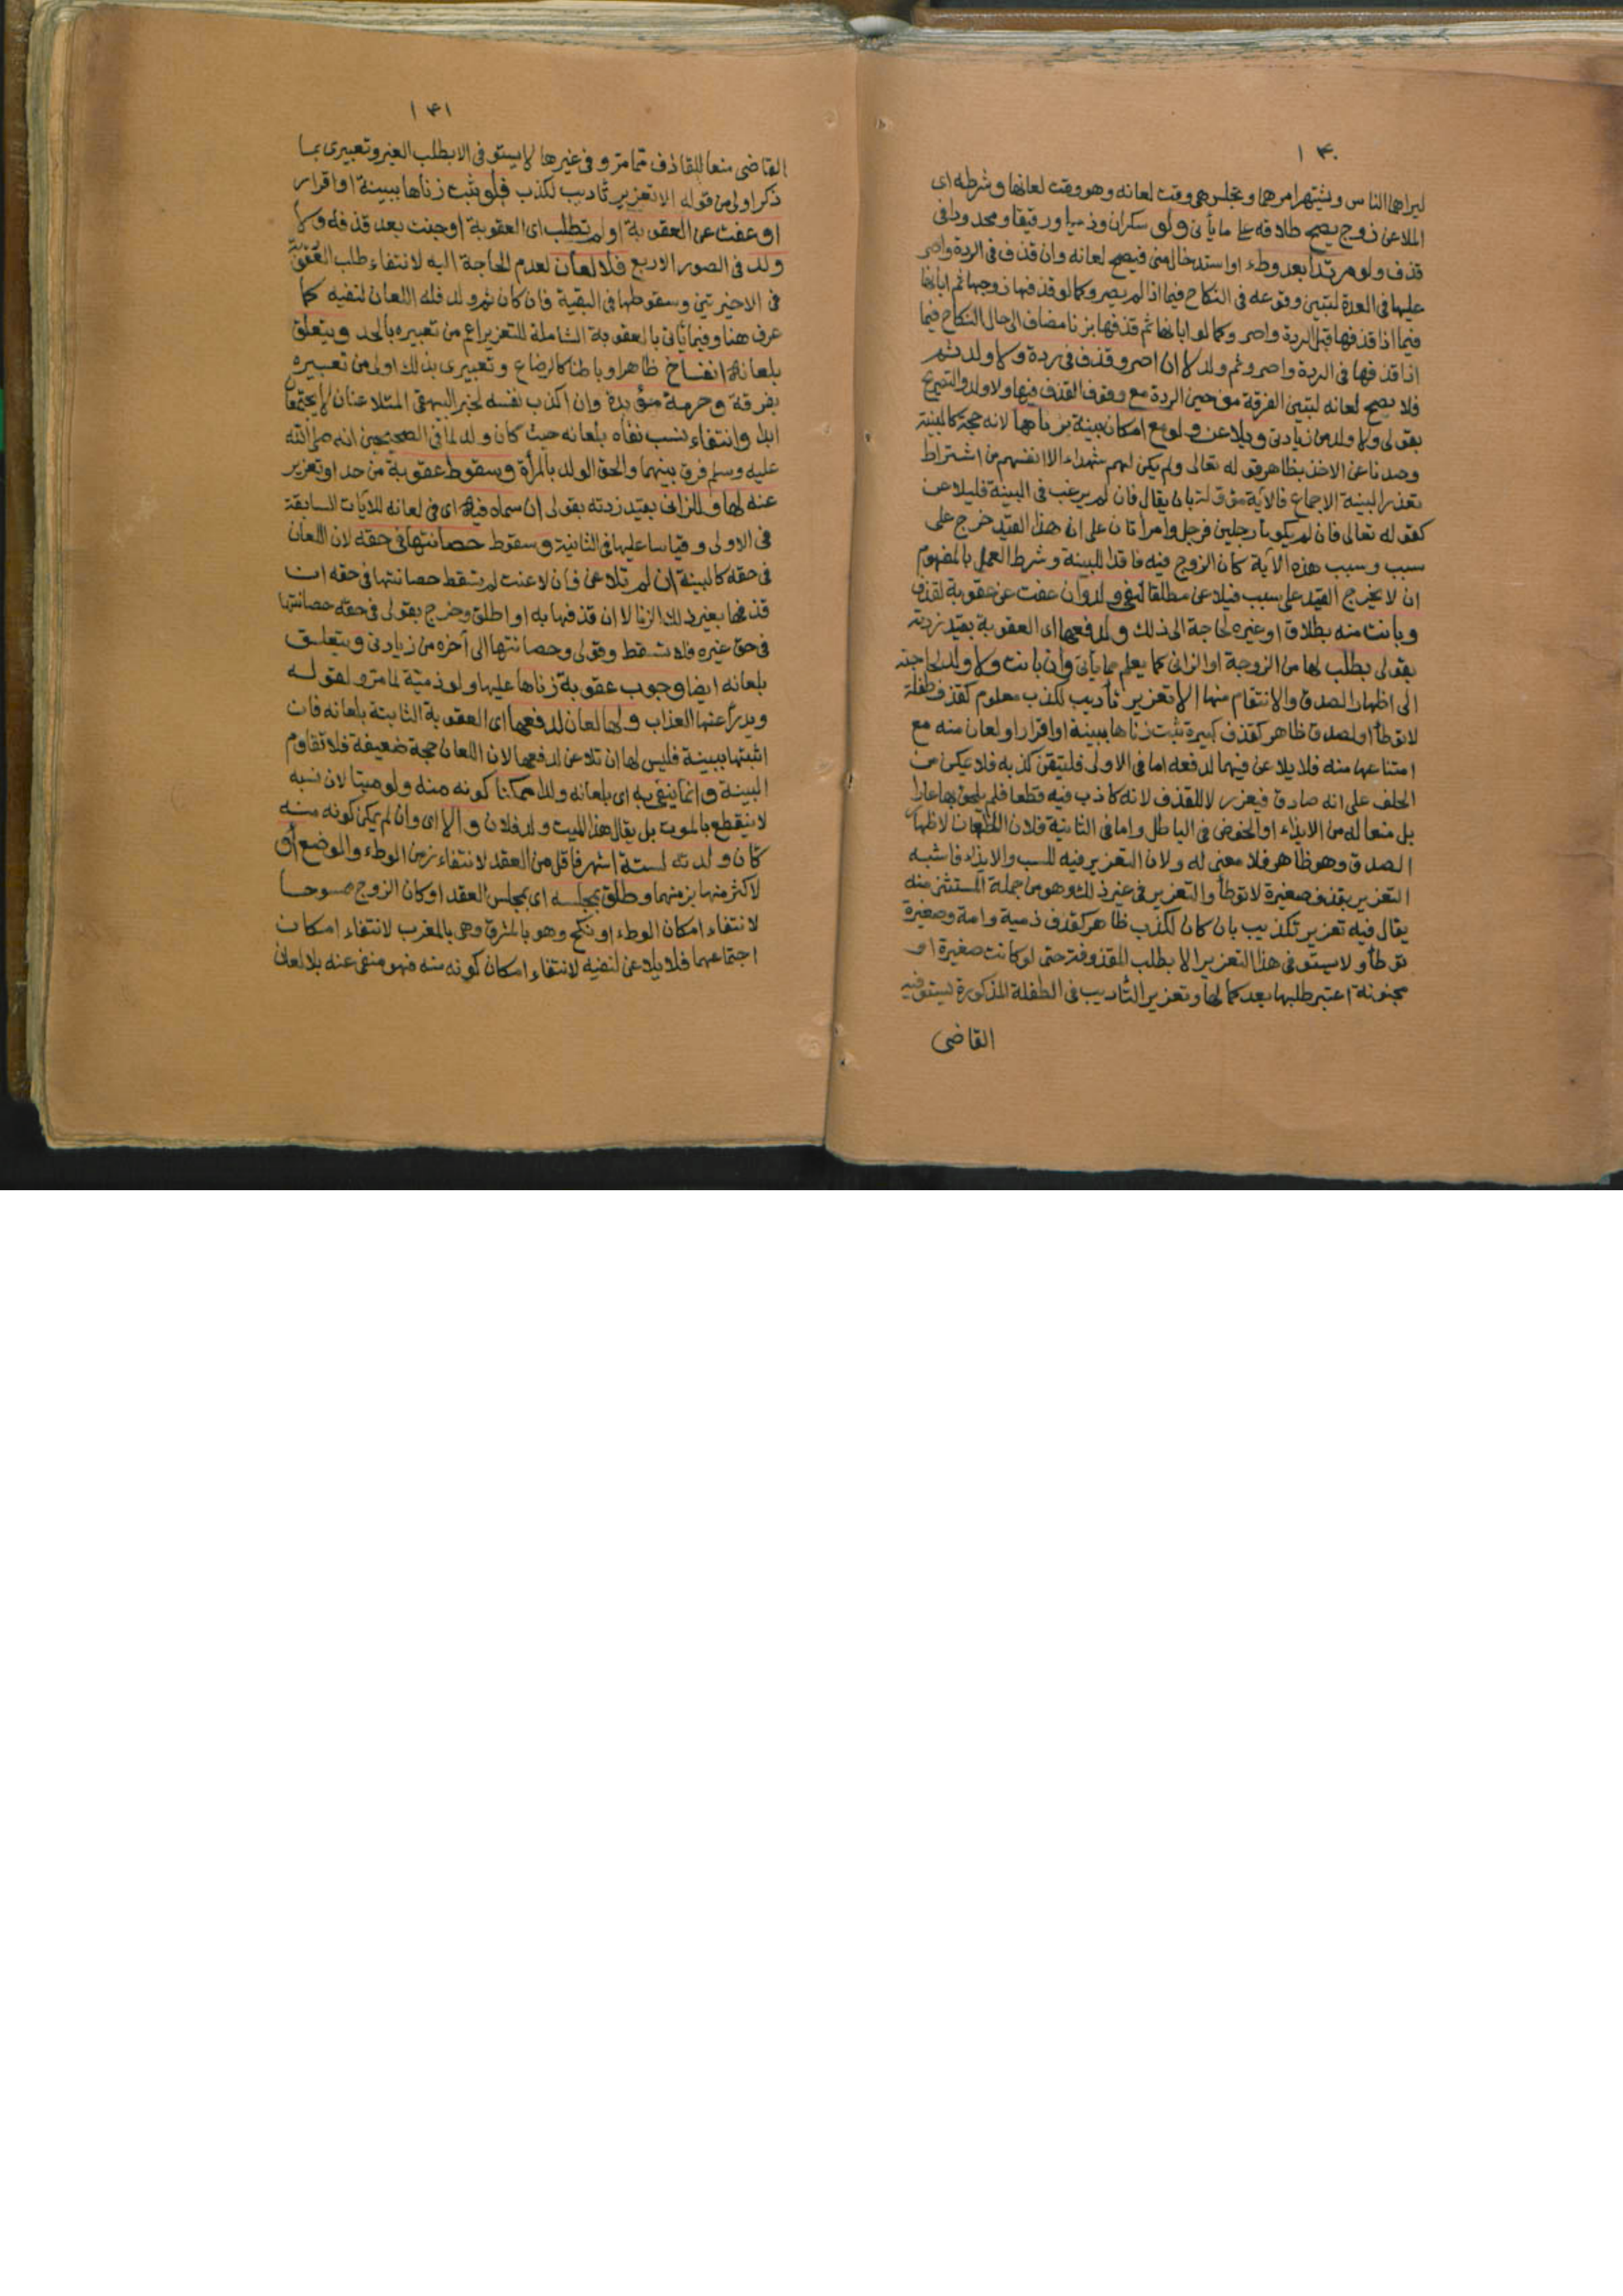 ١٤٠
ليراهما الناس ويشتهر امرهما ويجلس هي وقت لعانه وهو وقت لعانها وشرطه اى
الملاعن زوج يصح طلاقه على ما يأتى ولو سكران وذميا ورقيقا ومحدودا فى
قذف ولو مرتدا بعد وطء او استدخال منى فيصح لعانه وان قذف فى الردة واصر
عليها فى العدة لتبين وقوعه فى النكاح فيما اذا لم يصر وكما لو قذفها زوجها ثم ابانها
فيما اذا قذفها قبل الردة واصر وكما لو ابانها ثم قذفها بزنا مضاف الى حال النكاح فيما
اذا قذفها فى الردة واصر وثم ولد لا ان اصر وقذف فى ردة ولا ولد ثم
فلا يصح لعانه لتبين الفرقة من حين الردة مع وقوف القذف فيها ولا ولد والتصريح
بقولى ولا ولد من زيادتى ويلاعن ولو مع امكان بينة بزناها لانه حجة كالبينة
وصدنا عن الاخذ بظاهر قوله تعالى ولم يكن لهم شهداء الا انفسهم من اشتراط
تعذر البينة الاجماع فالاية مؤولة بان يقال فان لم يرغب فى البينة فليلاعن
كقوله تعالى فان لم يكونا رجلين فرجل وامراتان على ان هذا القيد خرج على
سبب وسبب هذه الآية كان الزوج فيه فاقدا للبينة وشرط العمل بالمفهوم
ان لا يخرج القيد على سبب فيلاعن مطلقا لنفى ولد وان عفت عن عقوبة لقذف
وبانت منه بطلاق او غيره لحاجة الى ذلك ولدفعها اى العقوبة بقيد زدته
بقولى بطلب لها من الزوجة او الزانى كما يعلم مما يأتى وان بانت ولا ولد لحاجته
الى اظهار الصدق والانتقام منها الا تعزير تأديب لكذب معلوم كقذف طفلة
لا توطأ او لصدق ظاهر كقذف كبيرة ثبت زناها ببينة او اقرار او لعان منه مع
امتناعها منه فلا يلاعن فيهما لدفعه اما فى الاولى فلتيقن كذبه فلا يمكن من
الحلف على انه صادق فيعزر لا للقذف لانه كاذب فيه قطعا فلم يلحق بها عارا
بل منعا له من الايذاء او الخوض فى الباطل واما فى الثانية فلان اللعان لاظهار
الصدق وهو ظاهر فلا معنى له ولان التعزير فيه للسب والايذاء فاشبه
التعزير بقذف صغيرة لا توطأ والتعزير فى غير ذلك وهو من جملة المستثنى منه
يقال فيه تعزير تكذيب بان كان لكذب ظاهر كقذف ذمية وامة وصغيرة
توطأ ولا يستوفى هذا التعزير الا بطلب المقذوفة حتى لو كانت صغيرة او
مجنونة اعتبر طلبها بعد كمالها وتعزير التأديب فى الطفلة المذكورة يستوفيه
القاضى
١٤١
القاضى منعا للقاذف مما مر وفى غيرها لا يستوفى الا بطلب الغير وتعبيرى بما
ذكر اولى من قوله الا تعزير تأديب لكذب فلو ثبت زناها ببينة او اقرار
او عفت عن العقوبة او لم تطلب اى العقوبة او جنت بعد قذفه ولا
ولد فى الصور الاربع فلا لعان لعدم الحاجة اليه لانتفاء طلب العقوبة
فى الاخيرتين وسقوطها فى البقية فان كان ثم ولد فله اللعان لنفيه كما
عرف هنا وفيما يأتى بالعقوبة الشاملة للتعزير اعم من تعبيره بالحد ويتعلق
بلعانه انفساخ ظاهرا وباطنا كالرضاع وتعبيرى بذلك اولى من تعبيره
بفرقة وحرمة مؤبدة وان اكذب نفسه لخبر البيهقى المتلاعنان لا يجتمعان
ابدا وانتفاء نسب نفاه بلعانه حيث كان ولد لما فى الصحيحين انه صلى الله
عليه وسلم فرق بينهما والحق الولد بالمرأة وسقوط عقوبة من حد او تعزير
عنه لها وللزانى بقيد زدته بقولى ان سماه فيه اى فى لعانه للآيات السابقة
فى الاولى وقياسا عليها فى الثانية وسقوط حصانتها فى حقه لان اللعان
فى حقه كالبينة ان لم تلاعن فان لاعنت لم تسقط حصانتها فى حقه ان
قذفها بغير ذلك الزنا لا ان قذفها به او اطلق وخرج بقولى فى حقه حصانتها
فى حق غيره فلا تسقط وقولى وحصانتها الى آخره من زيادتى ويتعلق
بلعانه ايضا وجوب عقوبة زناها عليها ولو ذمية لما مر ولقوله
ويدرأ عنها العذاب ولها لعان لدفعها اى العقوبة الثابتة بلعانه فان
اثبتها ببينة فليس لها ان تلاعن لدفعها لان اللعان حجة ضعيفة فلا تقاوم
البينة وانما ينفى به اى بلعانه ولدا ممكنا كونه منه ولو ميتا لان نسبه
لا ينقطع بالموت بل يقال هذا الميت ولد فلان والا اى وان لم يمكن كونه منه
كأن ولدته لستة اشهر فاقل من العقد لانتفاء زمن الوطء والوضع او
لاكثر منها بزمنهما وطلق بمجلسه اى بمجلس العقد او كان الزوج ممسوحا
لانتفاء امكان الوطء او نكح وهو بالمشرق وهى بالمغرب لانتفاء امكان
اجتماعهما فلا يلاعن لنفيه لانتفاء امكان كونه منه فهو منفى عنه بلا لعان